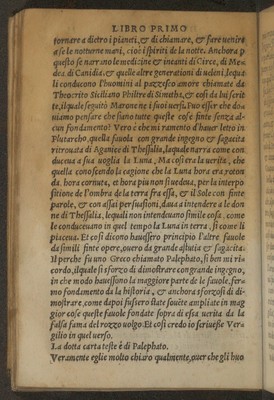 LIBRO PRIMO
tornare a dietro i pianeti, & di chiamare, & fare venire
a se le notturne mani, cioè i spiriti de la notte. Anchora p
questo se narrano le medicine & incanti di Circe, di Me-
dea di Canidia. & quelle altre generationi di ueleni, lequa
li conducono l'huomini al pazzesco amore chiamate da
Theocrito Siciliano Philtre di Simetha, & così da lui scrit
te, il quale seguitò Marone ne i suoi uersi. Puo esser che do
uiamo pensare che siano tutte queste cose finte senza al-
cun fondamento? Vero è che mi ramento d'hauer letto in
Plutarcho, quella fauola con grande ingegno & sagacita
ritrouata di Aganice di Thessalia, laquale narra come con
duceua a sua uoglia la Luna, Ma così era la uerità, che
quella conoscendo la cagione che la Luna hora era roton
da hora cornuta, et hora piu non si uedeua, per la interpo
sitione de l'ombra de la terra fra essa, & il Sole con finte
parole, & con assai persuasioni, daua a intendere a le don
ne di Thessalia, lequali non intenduano simile cosa, come
le conduceuano in quel tempo la Luna in terra, si come li
piaceua. Et così dicono hauessero principio l'altre fauole
da simili finte opere, ouero da grande astutia & sagacita.
Il perche fu uno Greco chiamato Palephato, si ben mi ri-
cordo, il quale si sforzò di dimostrare con grande ingegno,
in che modo hauessono la maggiore parte de le fauole, fer-
mo fondamento da la historia, & anchora sforzosi di di-
mostrare, come dapoi fussero state fouète ampliate in mag
gior cose queste fauole fondate sopra di essa uerita da la
falsa fama del rozzo uolgo. Et così credo io scriuesse Ver-
gilio in quel uerso.
La dotta carta teste è di Palephato.
Veramente egliè molto chiaro qualmente, ouer che gli huo